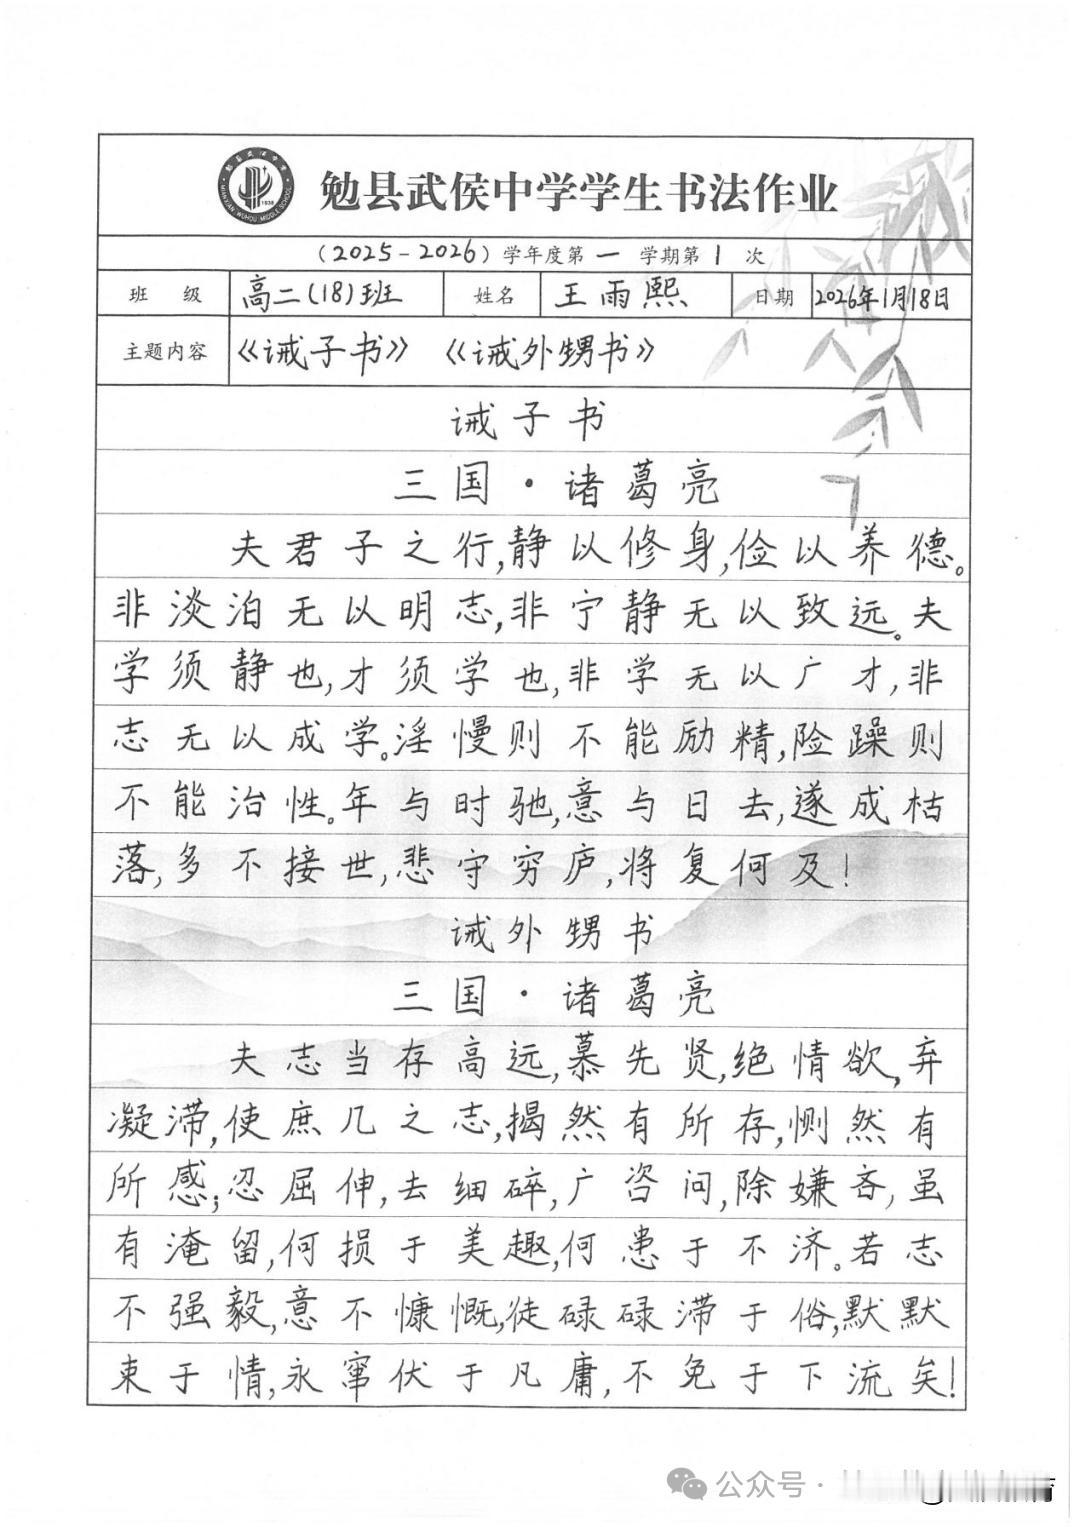 勉县武侯中学学生书法作业
（2025-2026）学年度第一学期第1次
班级 高二(18)班 姓名 王雨熙 日期 2026年1月18日
主题内容 《诫子书》 《诫外甥书》
诫子书
三国·诸葛亮
夫君子之行,静以修身,俭以养德。
非淡泊无以明志,非宁静无以致远。夫
学须静也,才须学也,非学无以广才,非
志无以成学。淫慢则不能励精,险躁则
不能治性。年与时驰,意与日去,遂成枯
落,多不接世,悲守穷庐,将复何及!
诫外甥书
三国·诸葛亮
夫志当存高远,慕先贤,绝情欲,弃
凝滞,使庶几之志,揭然有所存,恻然有
所感;忍屈伸,去细碎,广咨问,除嫌吝,虽
有淹留,何损于美趣,何患于不济。若志
不强毅,意不慷慨,徒碌碌滞于俗,默默
束于情,永窜伏于凡庸,不免于下流矣!
公众号·